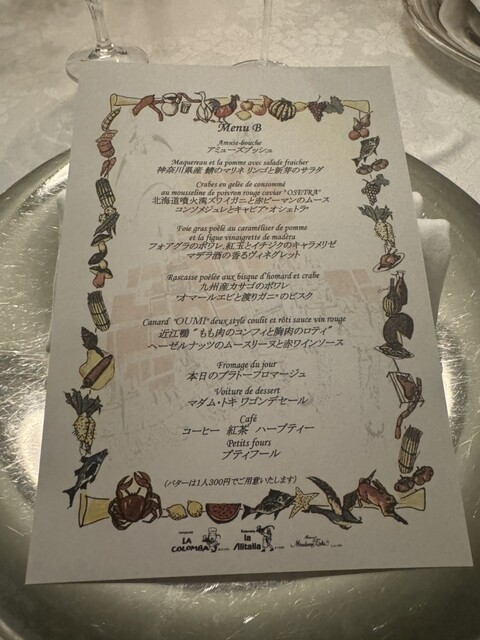 Menu B
Amuse-bouche
アミューズブッシュ
Maquereau et la pomme avec salade fraicher
神奈川県産 鯖のマリネ リンゴと新芽のサラダ
Crabes en gelée de consommé
au mousseline de poivron rouge caviar "OSETRA"
北海道噴火湾ズワイガニと赤ピーマンのムース
コンソメジュレとキャビア・オシェトラ・
Foie gras poêlé au caraméliser de pomme
et la figue vinaigrette de madera
フォアグラのポワレ、紅玉とイチジクのキャラメリゼ
マデラ酒の香るヴィネグレット
Rascasse poêlée aux bisque d'homard et crabe
九州産カサゴのポワレ
"オマールエビと渡りガニ"のビスク
Canard "OUMI" deux style coufit et rôti sauce vin rouge
近江鴨 "もも肉のコンフィと胸肉のロティ"
ヘーゼルナッツのムースリーヌと赤ワインソース
Fromage du jour
本日のプラトーフロマージュ
Voiture de dessert
マダム・トキ ワゴンデセール
Café
コーヒー 紅茶 ハーブティー
Petits fours
プティフール
(バターは1人300円でご用意いたします)
LA COLOMBA
la Alitalia
Madame Toki